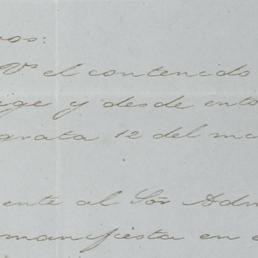 vos:
V.s el contenido
ige y desde ento
grata 12 del m
ente al Sõr Adm
manifiesta en